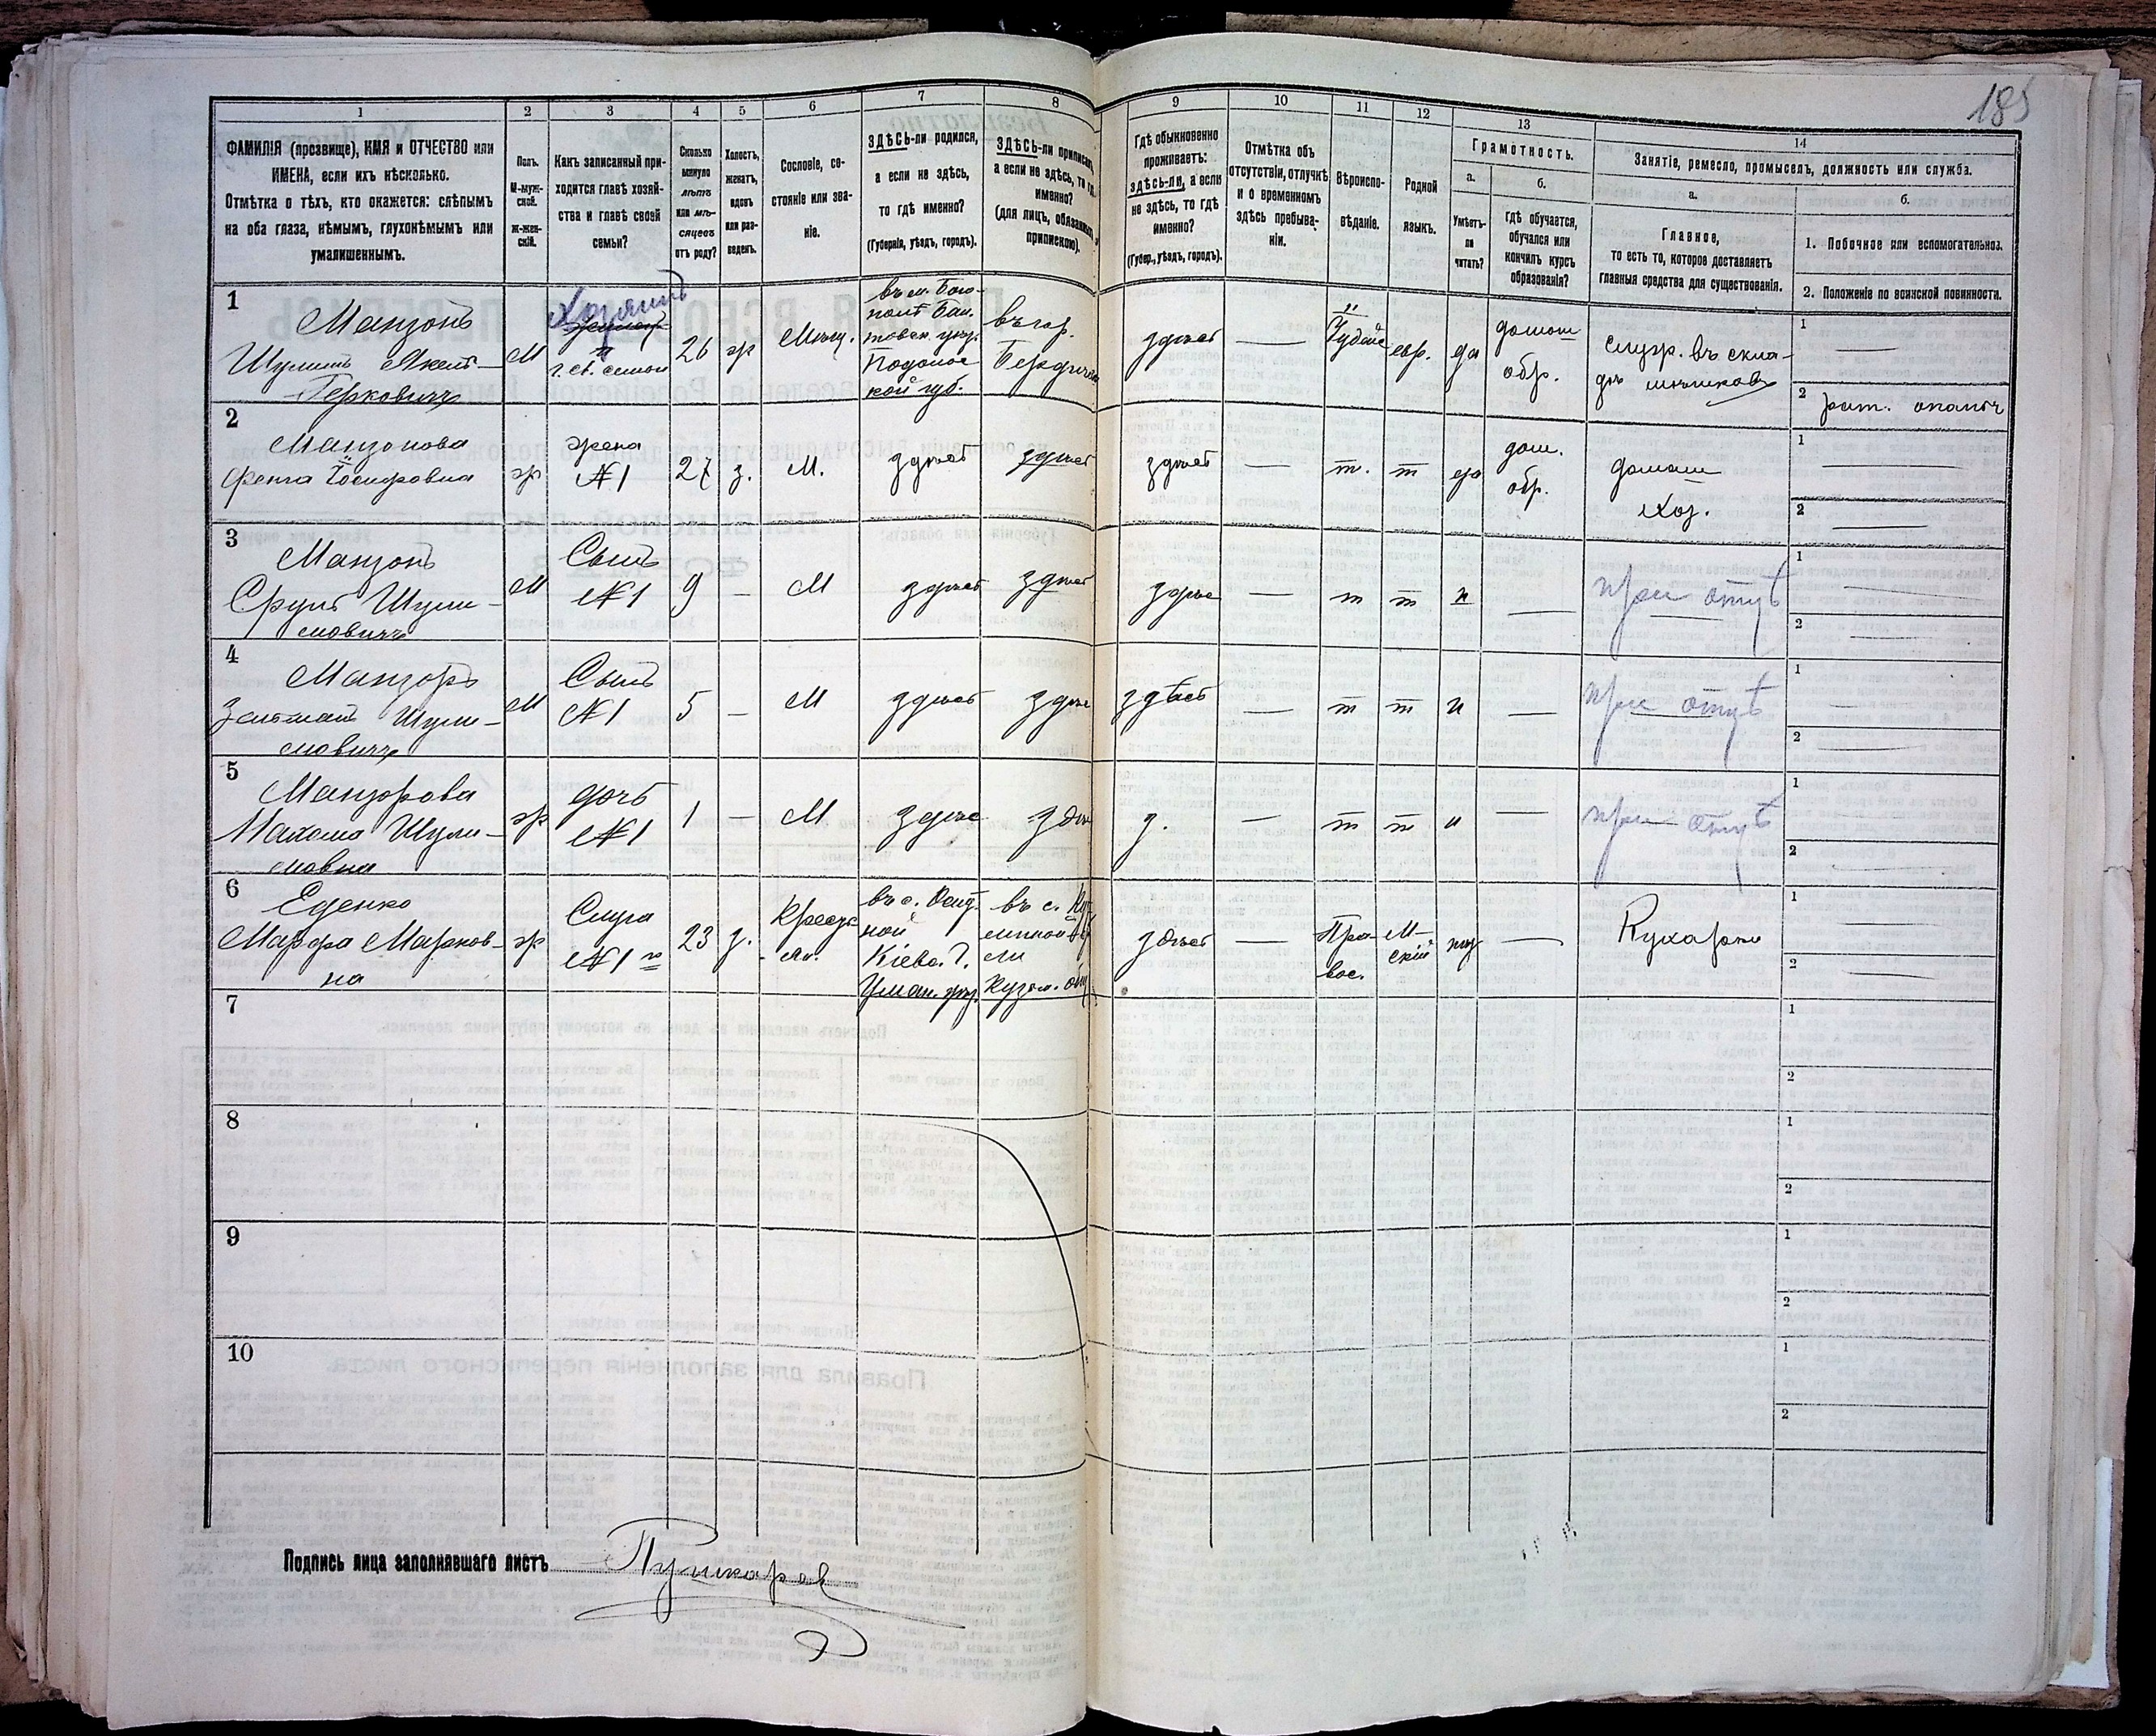 185
1
2
3
4
5
6
7
8
9
10
11
12
13
14
ФАМИЛІЯ (прозвище), ИМЯ и ОТЧЕСТВО или
ИМЕНА, если ихъ нѣсколько.
Отмѣтка о тѣхъ, кто окажется: слѣпымъ
на оба глаза, нѣмымъ, глухонѣмымъ или
умалишеннымъ.
Полъ.
М-муж-
ской.
Ж-жен-
скій.
Какъ записанный при-
ходится главѣ хозяй-
ства и главѣ своей
семьи?
Сколько
минуло
лѣтъ
или мѣ-
сяцевъ
отъ роду?
Холостъ,
женатъ,
вдовъ
или раз-
веденъ.
Сословіе, со-
стояніе или зва-
ніе.
ЗДѢСЬ-ли родился,
а если не здѣсь,
то гдѣ именно?
(Губернія, уѣздъ, городъ).
ЗДѢСЬ-ли приписанъ,
а если не здѣсь, то гдѣ
именно?
(для лицъ, обязанныхъ
припискою).
Гдѣ обыкновенно
проживаетъ:
здѣсь-ли, а если
не здѣсь, то гдѣ
именно?
(Губер., уѣздъ, городъ).
Отмѣтка объ
отсутствіи, отлучкѣ
и о временномъ
здѣсь пребыва-
ніи.
Вѣроиспо-
вѣданіе.
Родной
языкъ.
Грамотность.
а.
Умѣетъ-
ли
читать?
б.
Гдѣ обучается,
обучался или
кончилъ курсъ
образованія?
Занятіе, ремесло, промыселъ, должность или служба.
а.
Главное,
то есть то, которое доставляетъ
главныя средства для существованія.
б.
1. Побочное или вспомогательное.
2. Положеніе по воинской повинности.
1
Манзонъ
Шулимъ
Герковичъ
М
Хозяинъ
г. св. семьи
26
ж
Мѣщ.
Подольс
кой губ.
въ гор.
Бердичев
здѣсь
Іудейс
евр.
да
домаш
обр.
служ. въ скла-
дѣ мѣшковъ
1
2
рат. ополч
2
Манзонова
Іосифовна
ж
жена
№ 1
27
з.
М.
здѣсь
здѣсь
здѣсь
т.
т
да
дом.
обр.
домаш
хоз.
1
2
3
Манзонъ
Сруль Шули-
мовичъ
М
Сынъ
№ 1
9
М
здѣсь
здѣсь
здѣс
т
т
н
при отцѣ
1
2
4
Шули-
мовичъ
М
Сынъ
№ 1
5
М
здѣсь
здѣс
здѣсь
т
т
н
при отцѣ
1
2
5
Шули-
мовна
ж
дочь
№ 1
1
М
здѣс
здѣс
з.
т
т
н
при отцѣ
1
2
6
Еденко
Марфа Марков-
на
ж
Слуга
№ 1 го
23
з.
Кресть
ян.
Кіевс. Г.
Уман. уѣз.
въ с.
здѣсь
Пра-
вос.
М-
скій
Кухарка
1
2
7
1
2
8
1
2
9
1
2
10
1
2
Подпись лица заполнявшаго листъ Пушкарев